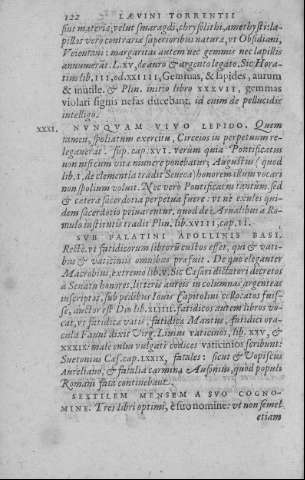 122 LÆVINI TORRENTII
sius materia; velut smaragdi, chrysolithi, amethysti: la-
pillos vero contraria superioribus natura, vt Obsidiani,
Veientani: margaritas autem nec gemmis nec lapillis
annumerat. l. XV, de auro & argento legato. Sic Hora-
tius lib. III, od. XXIIII, Gemmas, & lapides, aurum
& inutile. & Plin. initio libro XXXVII, gemmas
violari signis nefas ducebant. id enim de pellucidis
intelligo.
XXXI. NVNQVAM VIVO LEPIDO. Quem
tamen, spoliatum exercitu, Circeios in perpetuum re-
legauerat. sup. cap. XVI. verùm quia Pontificatus
non nisi cum vita munere ponebatur, Augustus ( quod
lib. I, de clementia tradit Seneca) honorem illum vocari
non spolium voluit. Nec verò Pontificatus tantùm, sed
& cetera sacerdotia perpetua fuere. vt nè exules qui-
dem sacerdotio priuarentur, quod de Arualibus à Ro-
mulo institutis tradit Plin, lib. XVIII, cap. II.
SVB PALATINI APOLLINIS BASI.
Rectè. vt fatidicorum librorum custos esset, qui & vati-
bus & vaticiniis omnibus præsuit. De quo eleganter
Macrobius, extremo lib. V. Sic Cæsari dictatori decretos
à Senatu honores, litteris aureis in columnas argenteas
inscriptos, sub pedibus Iouis Capitolini collocatos fuis-
se, auctor est Dio lib. XLIIII. fatidicos autem libros vo-
cat, vt fatidica vatis, fatidica Mantus, fatidici ora-
cula Fauni dixit Virg. Liuius vaticinos, lib. XXV, &
XXXIX: malè enim vulgati codices vaticinios scribunt:
Suetonius Cæs. cap. LXXIX, fatales: sicut & Vopiscus
Aureliano, & fatalia carmina Ausonius, quod populi
Romani fata continebant.
SEXTILEM MENSEM A SVO COGNO-
MINE. Tres libri optimi, è suo nomine: vt non semel
etiam